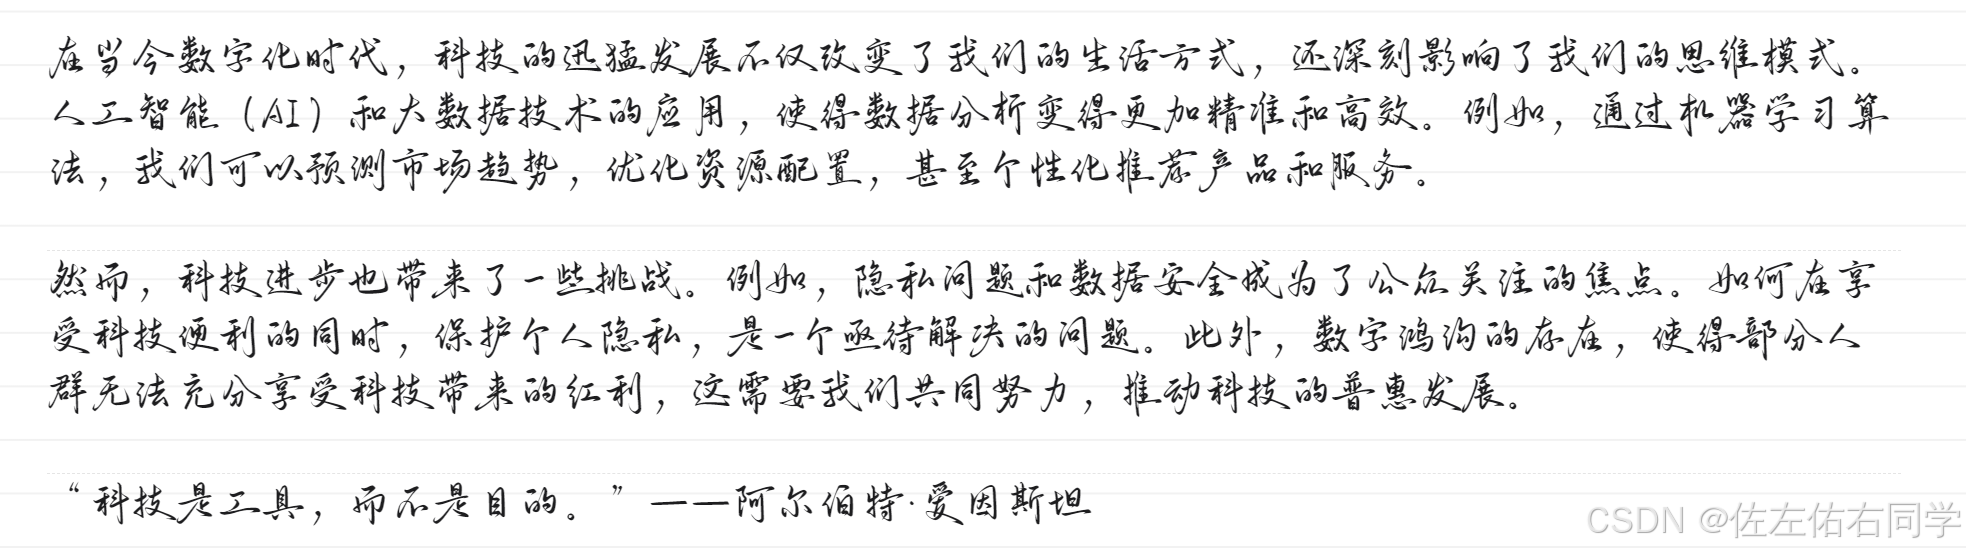 在当今数字化时代，科技的迅猛发展不仅改变了我们的生活方式，还深刻影响了我们的思维模式。
人工智能（AI）和大数据技术的应用，使得数据分析变得更加精准和高效。例如，通过机器学习算
法，我们可以预测市场趋势，优化资源配置，甚至个性化推荐产品和服务。
然而，科技进步也带来了一些挑战。例如，隐私问题和数据安全成为了公众关注的焦点。如何在享
受科技便利的同时，保护个人隐私，是一个亟待解决的问题。此外，数字鸿沟的存在，使得部分人
群无法充分享受科技带来的红利，这需要我们共同努力，推动科技的普惠发展。
“科技是工具，而不是目的。”——阿尔伯特·爱因斯坦
CSDN @佐左佑右同学